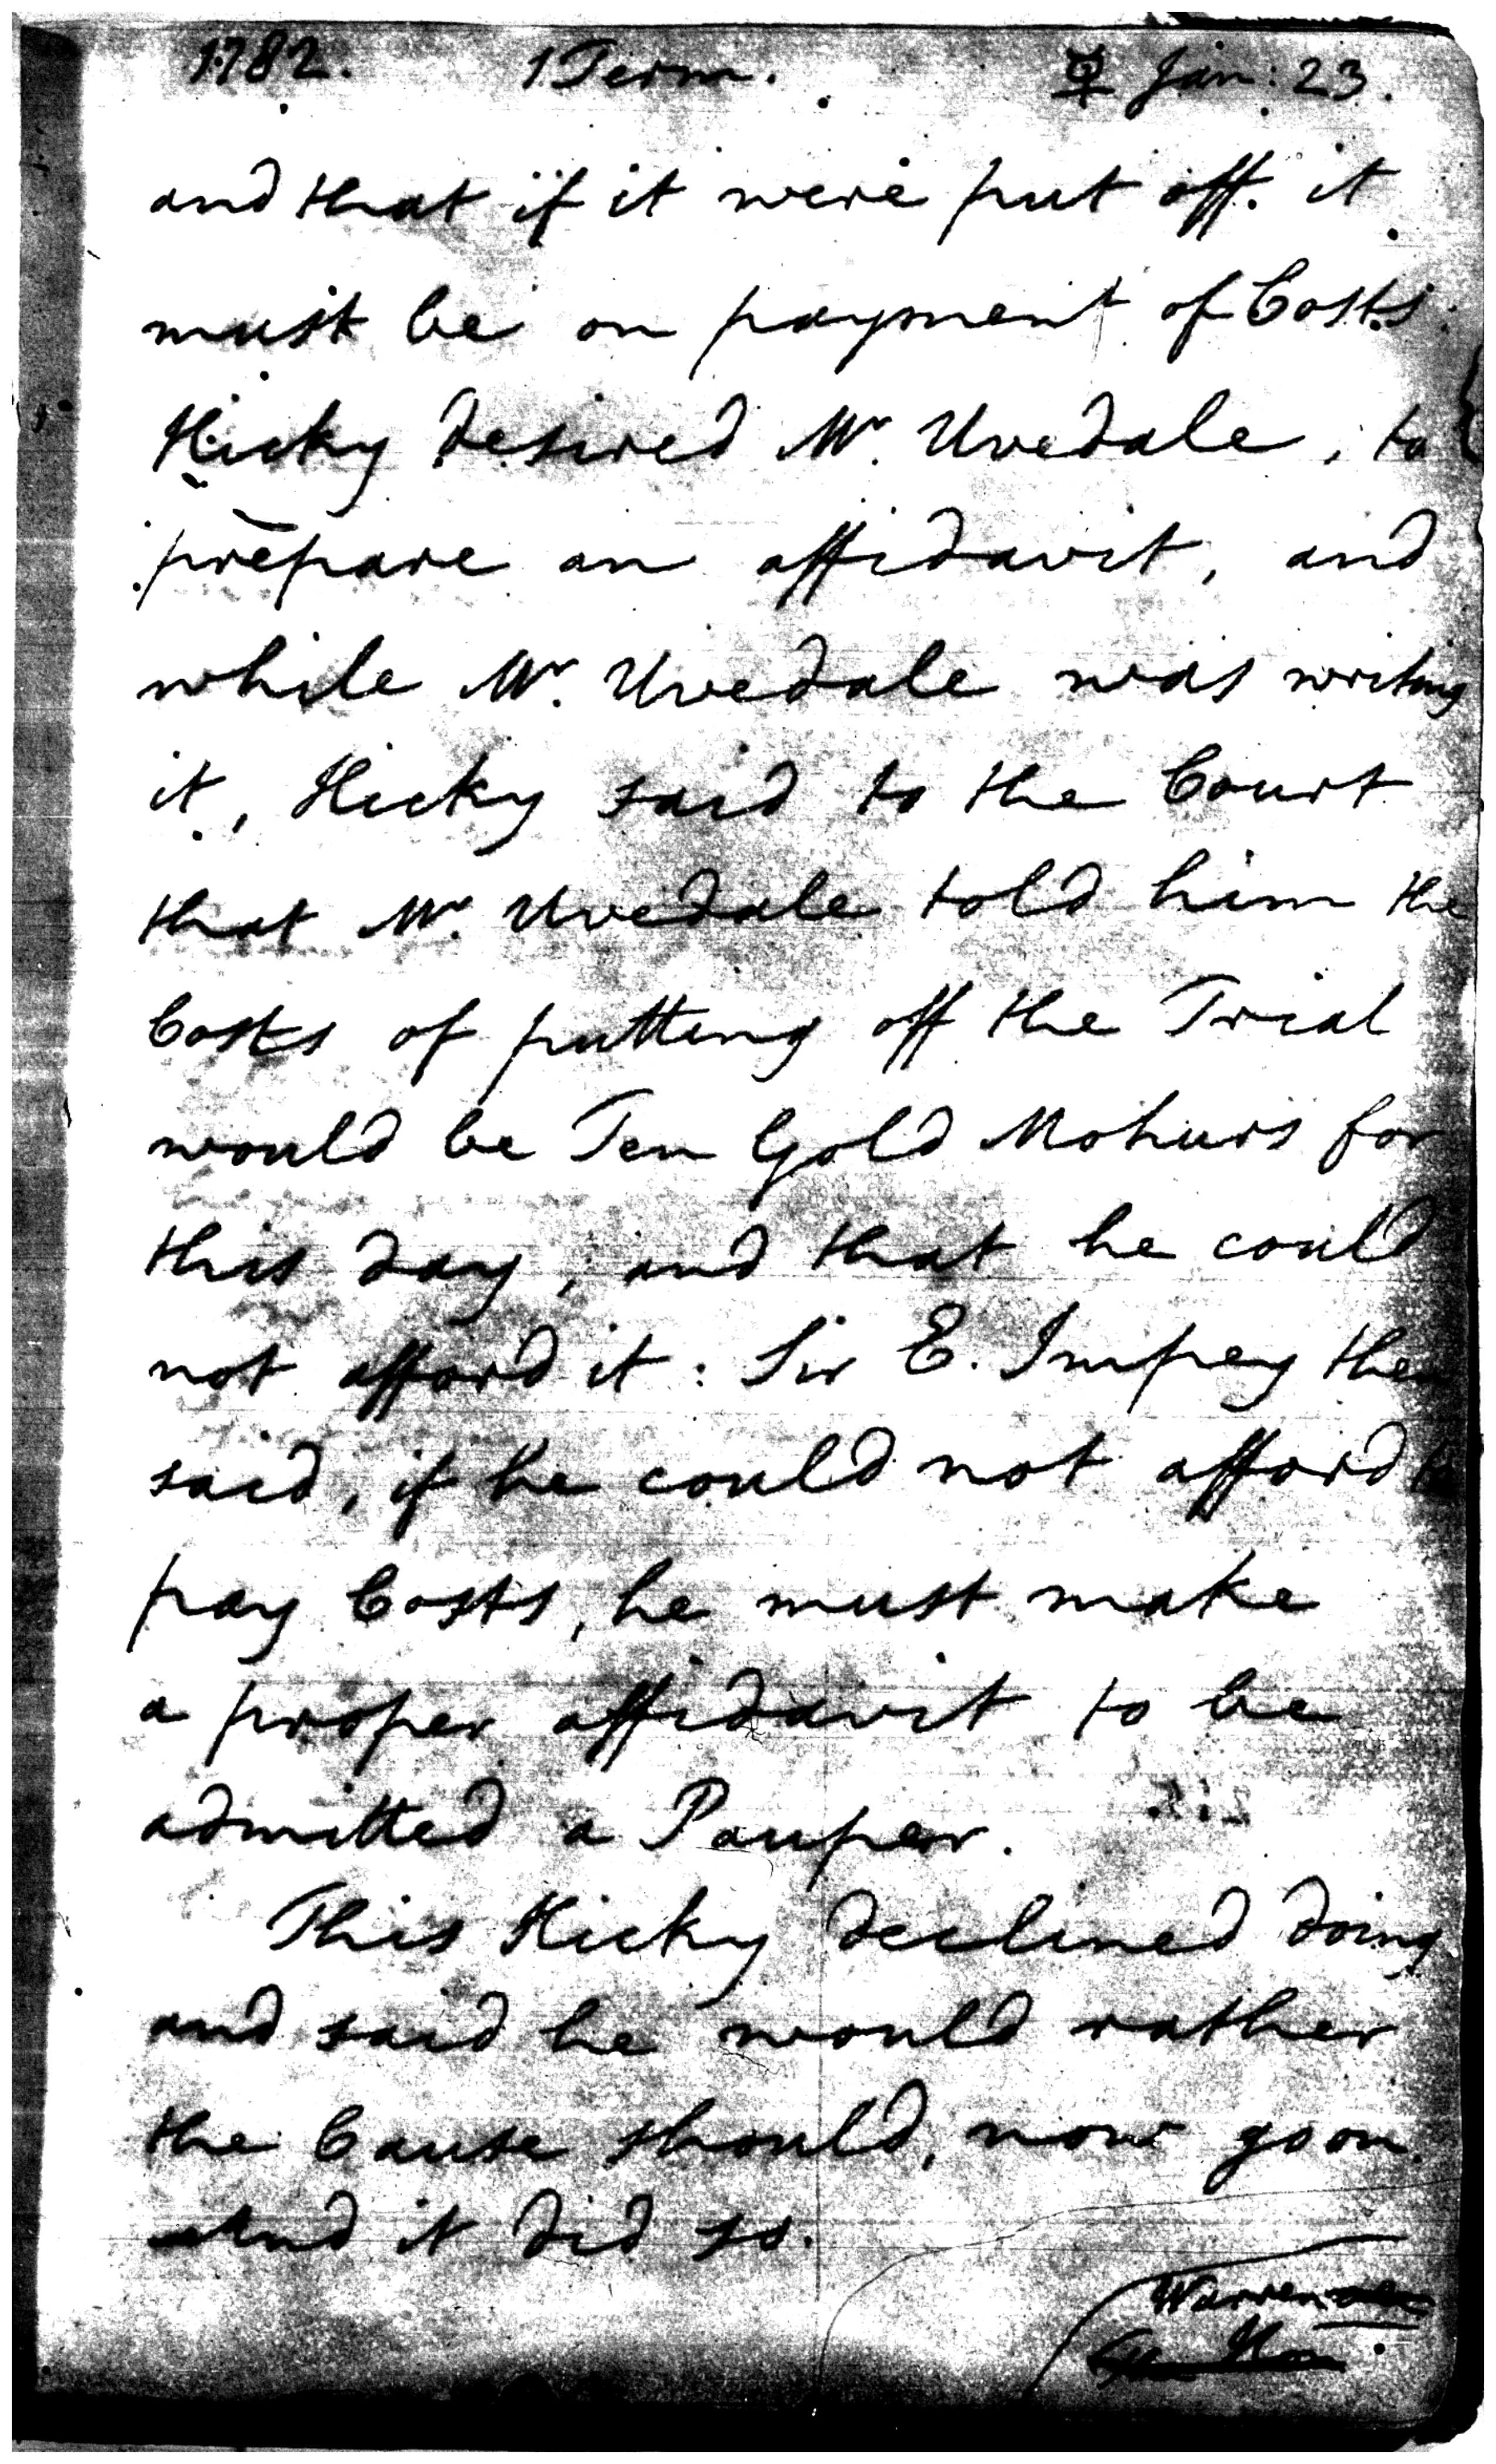 1782. 1 Term. ☿ Jan: 23.
and that if it were put off. it
must be on payment of Costs:
Hicky desired Mr. Uvedale, to
prepare an affidavit, and
while Mr. Uvedale was writing
it, Hicky said to the Court
that Mr. Uvedale told him the
Costs of putting off the Trial
would be Ten Gold Mohurs for
this day, and that he could
not afford it: Sir E. Impey then
said, if he could not afford to
pay Costs, he must make
a proper affidavit to be
admitted a Pauper.
This Hicky declined doing
and said he would rather
the Cause should, now go on
And it did so.
Warren